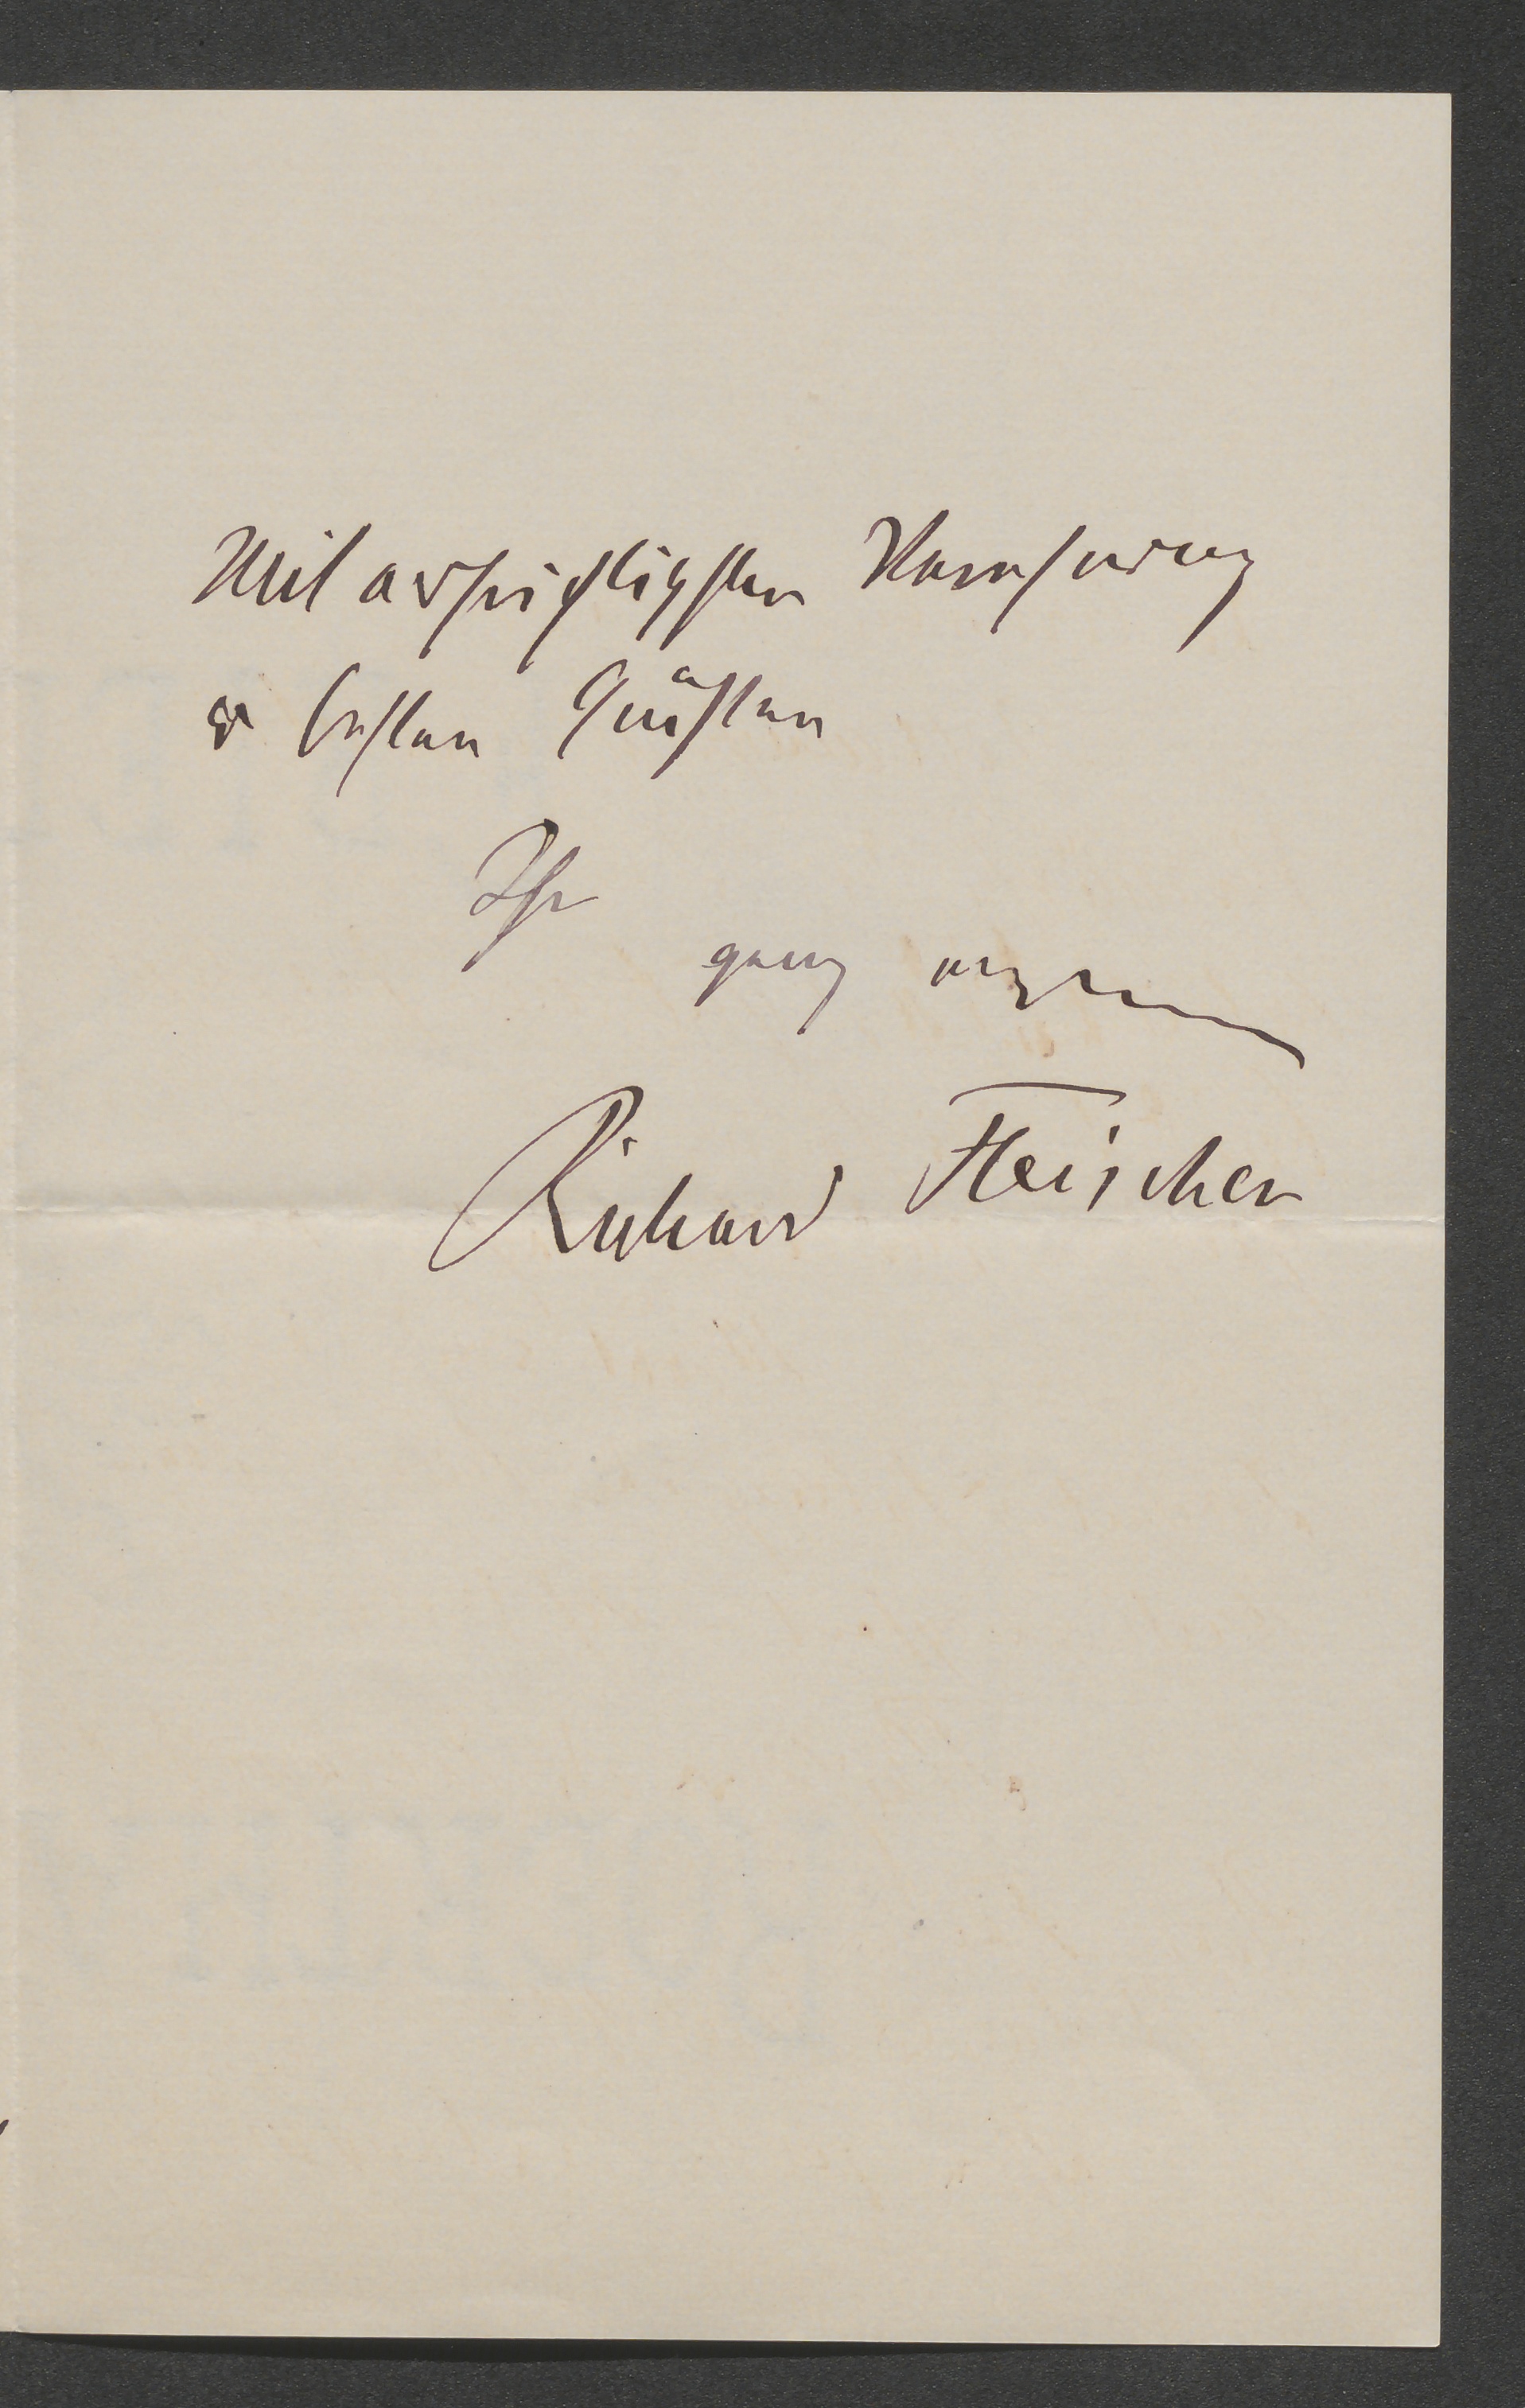 Mit aufrichtigster Verehrung
& besten Grüßen
Ihr
ganz ergebener
Richard Fleischer